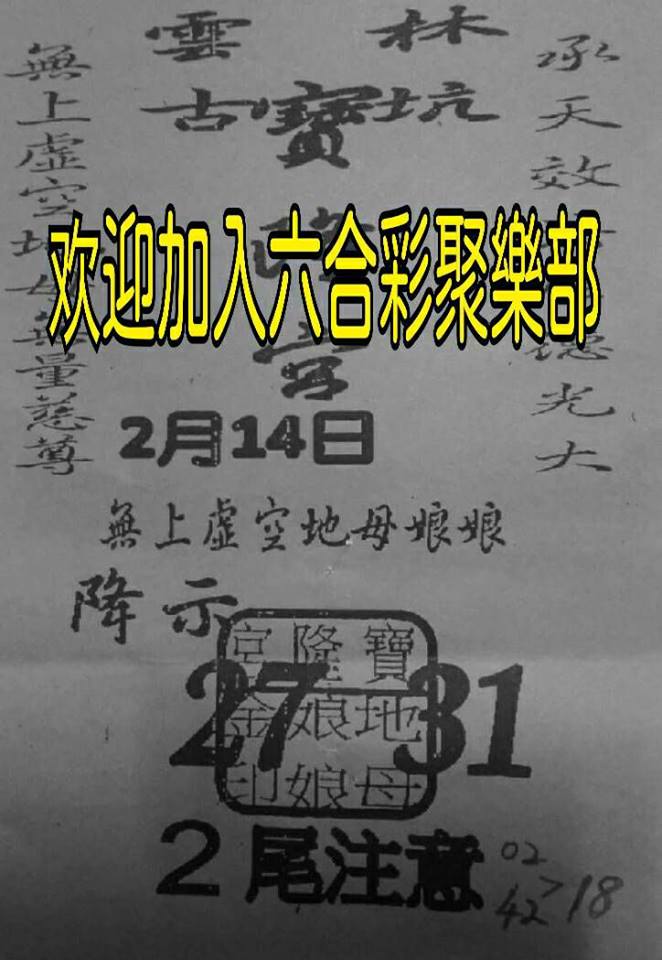 雲林
古寶坑
隆
宮
承天效
德光大
無上虛空地母無量慈尊
欢迎加入六合彩聚樂部
2月14日
無上虛空地母娘娘
降示
27 31
寶地母
隆娘娘
宮金印
2尾注意
02
42>18